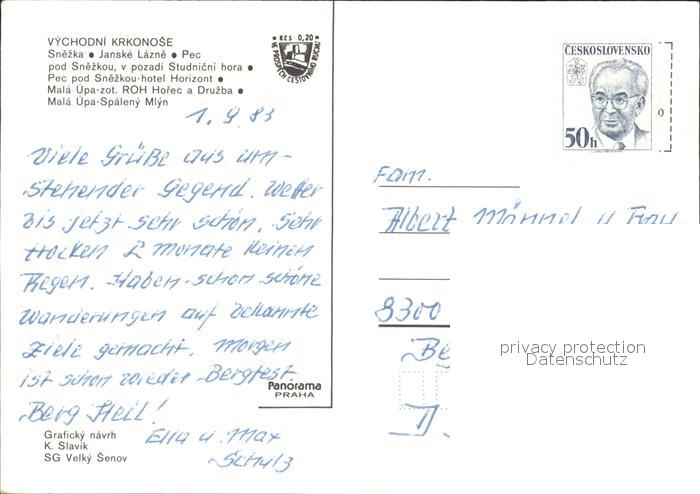 VÝCHODNÍ KRKONOŠE
Sněžka ● Janské Lázně ● Pec
pod Sněžkou, v pozadí Studniční hora ●
Pec pod Sněžkou-hotel Horizont ●
Malá Úpa-zot. ROH Hořec a Družba ●
Malá Úpa-Spálený Mlýn
Kčs 0,20
VE PROSPĚCH CESTOVNÍHO RUCHU
1. 9. 83
Viele Grüße aus um-
stehender Gegend. Wetter
bis jetzt sehr schön. Sehr
trocken 2 Monate keinen
Regen. Haben schon schöne
Wanderungen auf bekannte
Ziele gemacht. Morgen
ist schon wieder Bergfest.
Berg Heil!
Ella u. Max
Schulz
Panorama
PRAHA
Grafický návrh
K. Slavík
SG Velký Šenov
ČESKOSLOVENSKO
50h
Fam.
Albert Männel u Frau
8300
privacy protection
Datenschutz